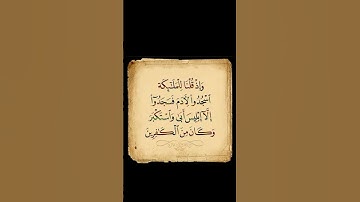 وَإِذْ قُلْنَا لِلْمَلَٰٓئِكَةِ
ٱسْجُدُوا۟ لِـَٔادَمَ فَسَجَدُوٓا۟
إِلَّآ إِبْلِيسَ أَبَىٰ وَٱسْتَكْبَرَ
وَكَانَ مِنَ ٱلْكَٰفِرِينَ